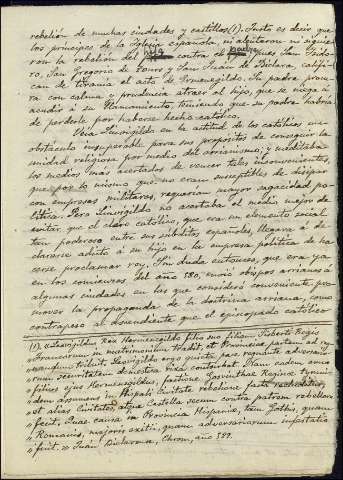 rebelión de muchas ciudades y castillos (1). Justo es decir que
los príncipes de la Iglesia española, ni alentaron ni siguie-
ron la rebelión del hijo contra el padre, pues San Isido-
ro, San Gregorio de Tours y San Juan de Biclara, califi-
can de tiranía el acto de Ermenegildo. Su padre procu-
ra con calma y prudencia atraer al hijo, que se niega á
acudir á su llamamiento, temiendo que su padre habría
de perderle por haberse hecho católico.
Veía Leovigildo en la actitud de los católicos un
obstáculo insuperable para sus propósitos de conseguir la
unidad religiosa por medio del arrianismo; y meditaba
los medios mas acertados de vencer tales inconvenientes,
que por lo mismo que no eran susceptibles de disipar
con empresas militares, requerían mayor sagacidad po-
lítica. Pero Leovigildo no acertaba el medio mejor de
evitar, que el clero católico, que era un elemento social
tan poderoso entre sus súbditos españoles, llegara á de-
clararse adicto á su hijo en la empresa política de ha-
cerse proclamar rey. Sin duda entonces, que era ya
en los comienzos del año 580, envió obispos arrianos á
algunas ciudades en las que consideró conveniente pro-
mover la propaganda de la doctrina arriana, como
contrapeso al ascendiente que el episcopado católico
(1). «Leovigildus Rex Hermenegildo filio suo filiam Sisberti Regis
Francorum in matrimonium tradit, et Provinciae partem ad reg-
nandum tribuit. Leovigildo ergo quieta pace regnante adversario-
rum securitatem domestica rixa conturbat. Nam eodem anno
filius ejus Hermenegildus, factione Gosuinthae Reginae tyranni-
dem assumens in Hispali Civitate rebelione facta recluditur,
et alias Civitates, atque Castella secum contra patrem rebellare
fecit. Quae causa in Provincia Hispaniae, tam Gothis, quam
Romanis, majoris exitii, quam adversariorum infestatio
fuit.» Juan Biclarense, Chron, año 579.